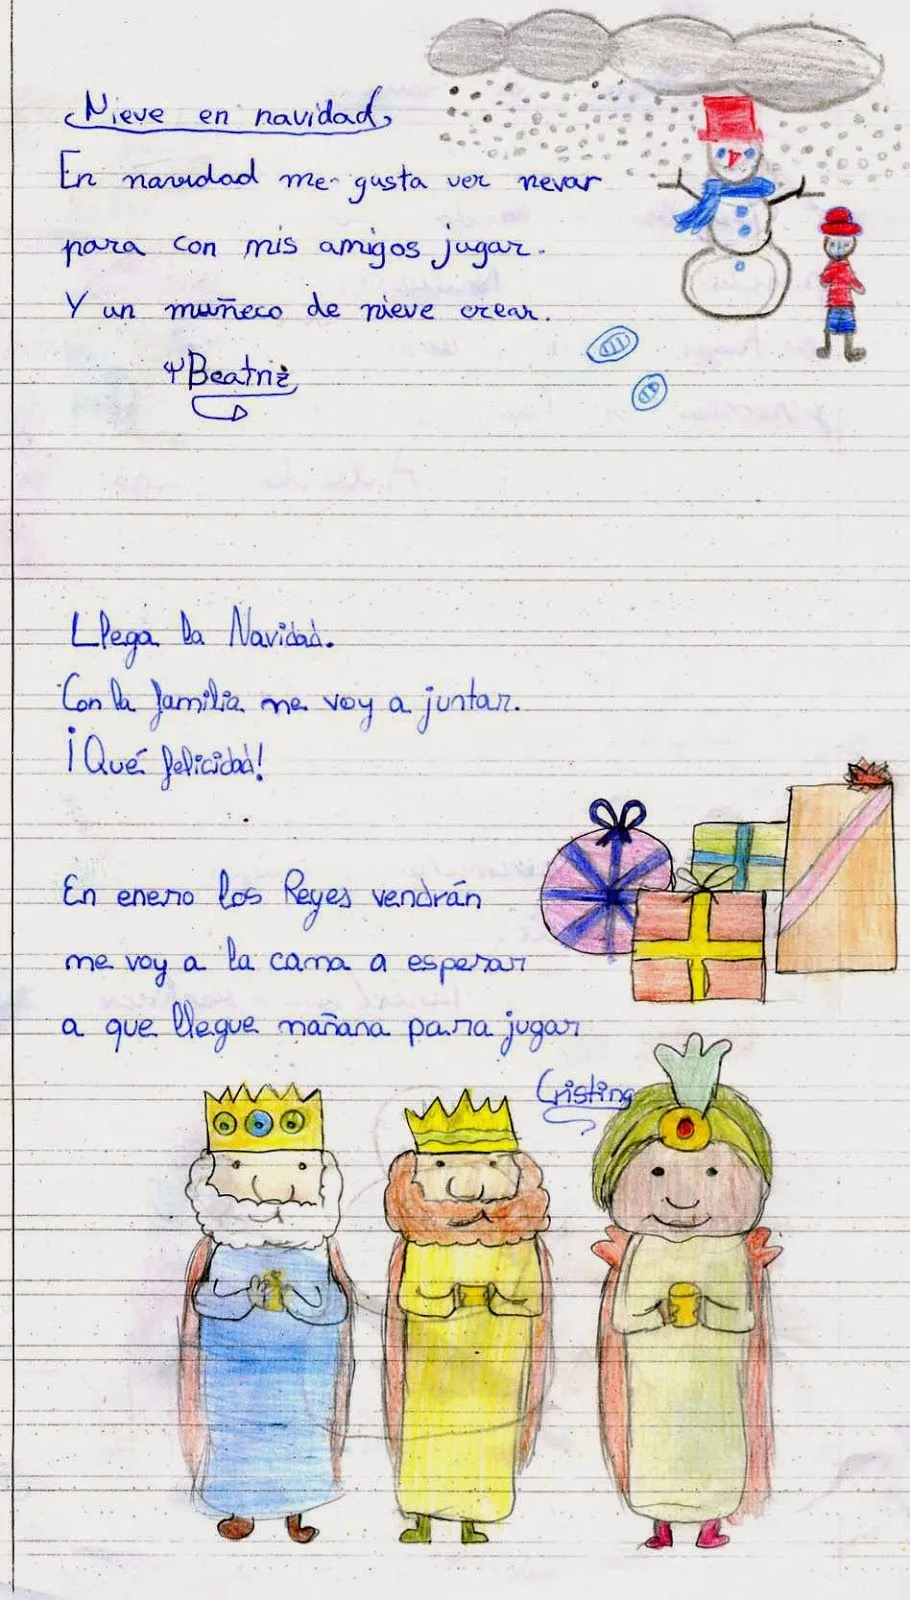 Nieve en navidad
En navidad me gusta ver nevar
para con mis amigos jugar.
Y un muñeco de nieve crear.
Beatriz
Llega la Navidad.
Con la familia me voy a juntar.
¡Qué felicidad!
En enero los Reyes vendrán
me voy a la cama a esperar
a que llegue mañana para jugar
Cristina